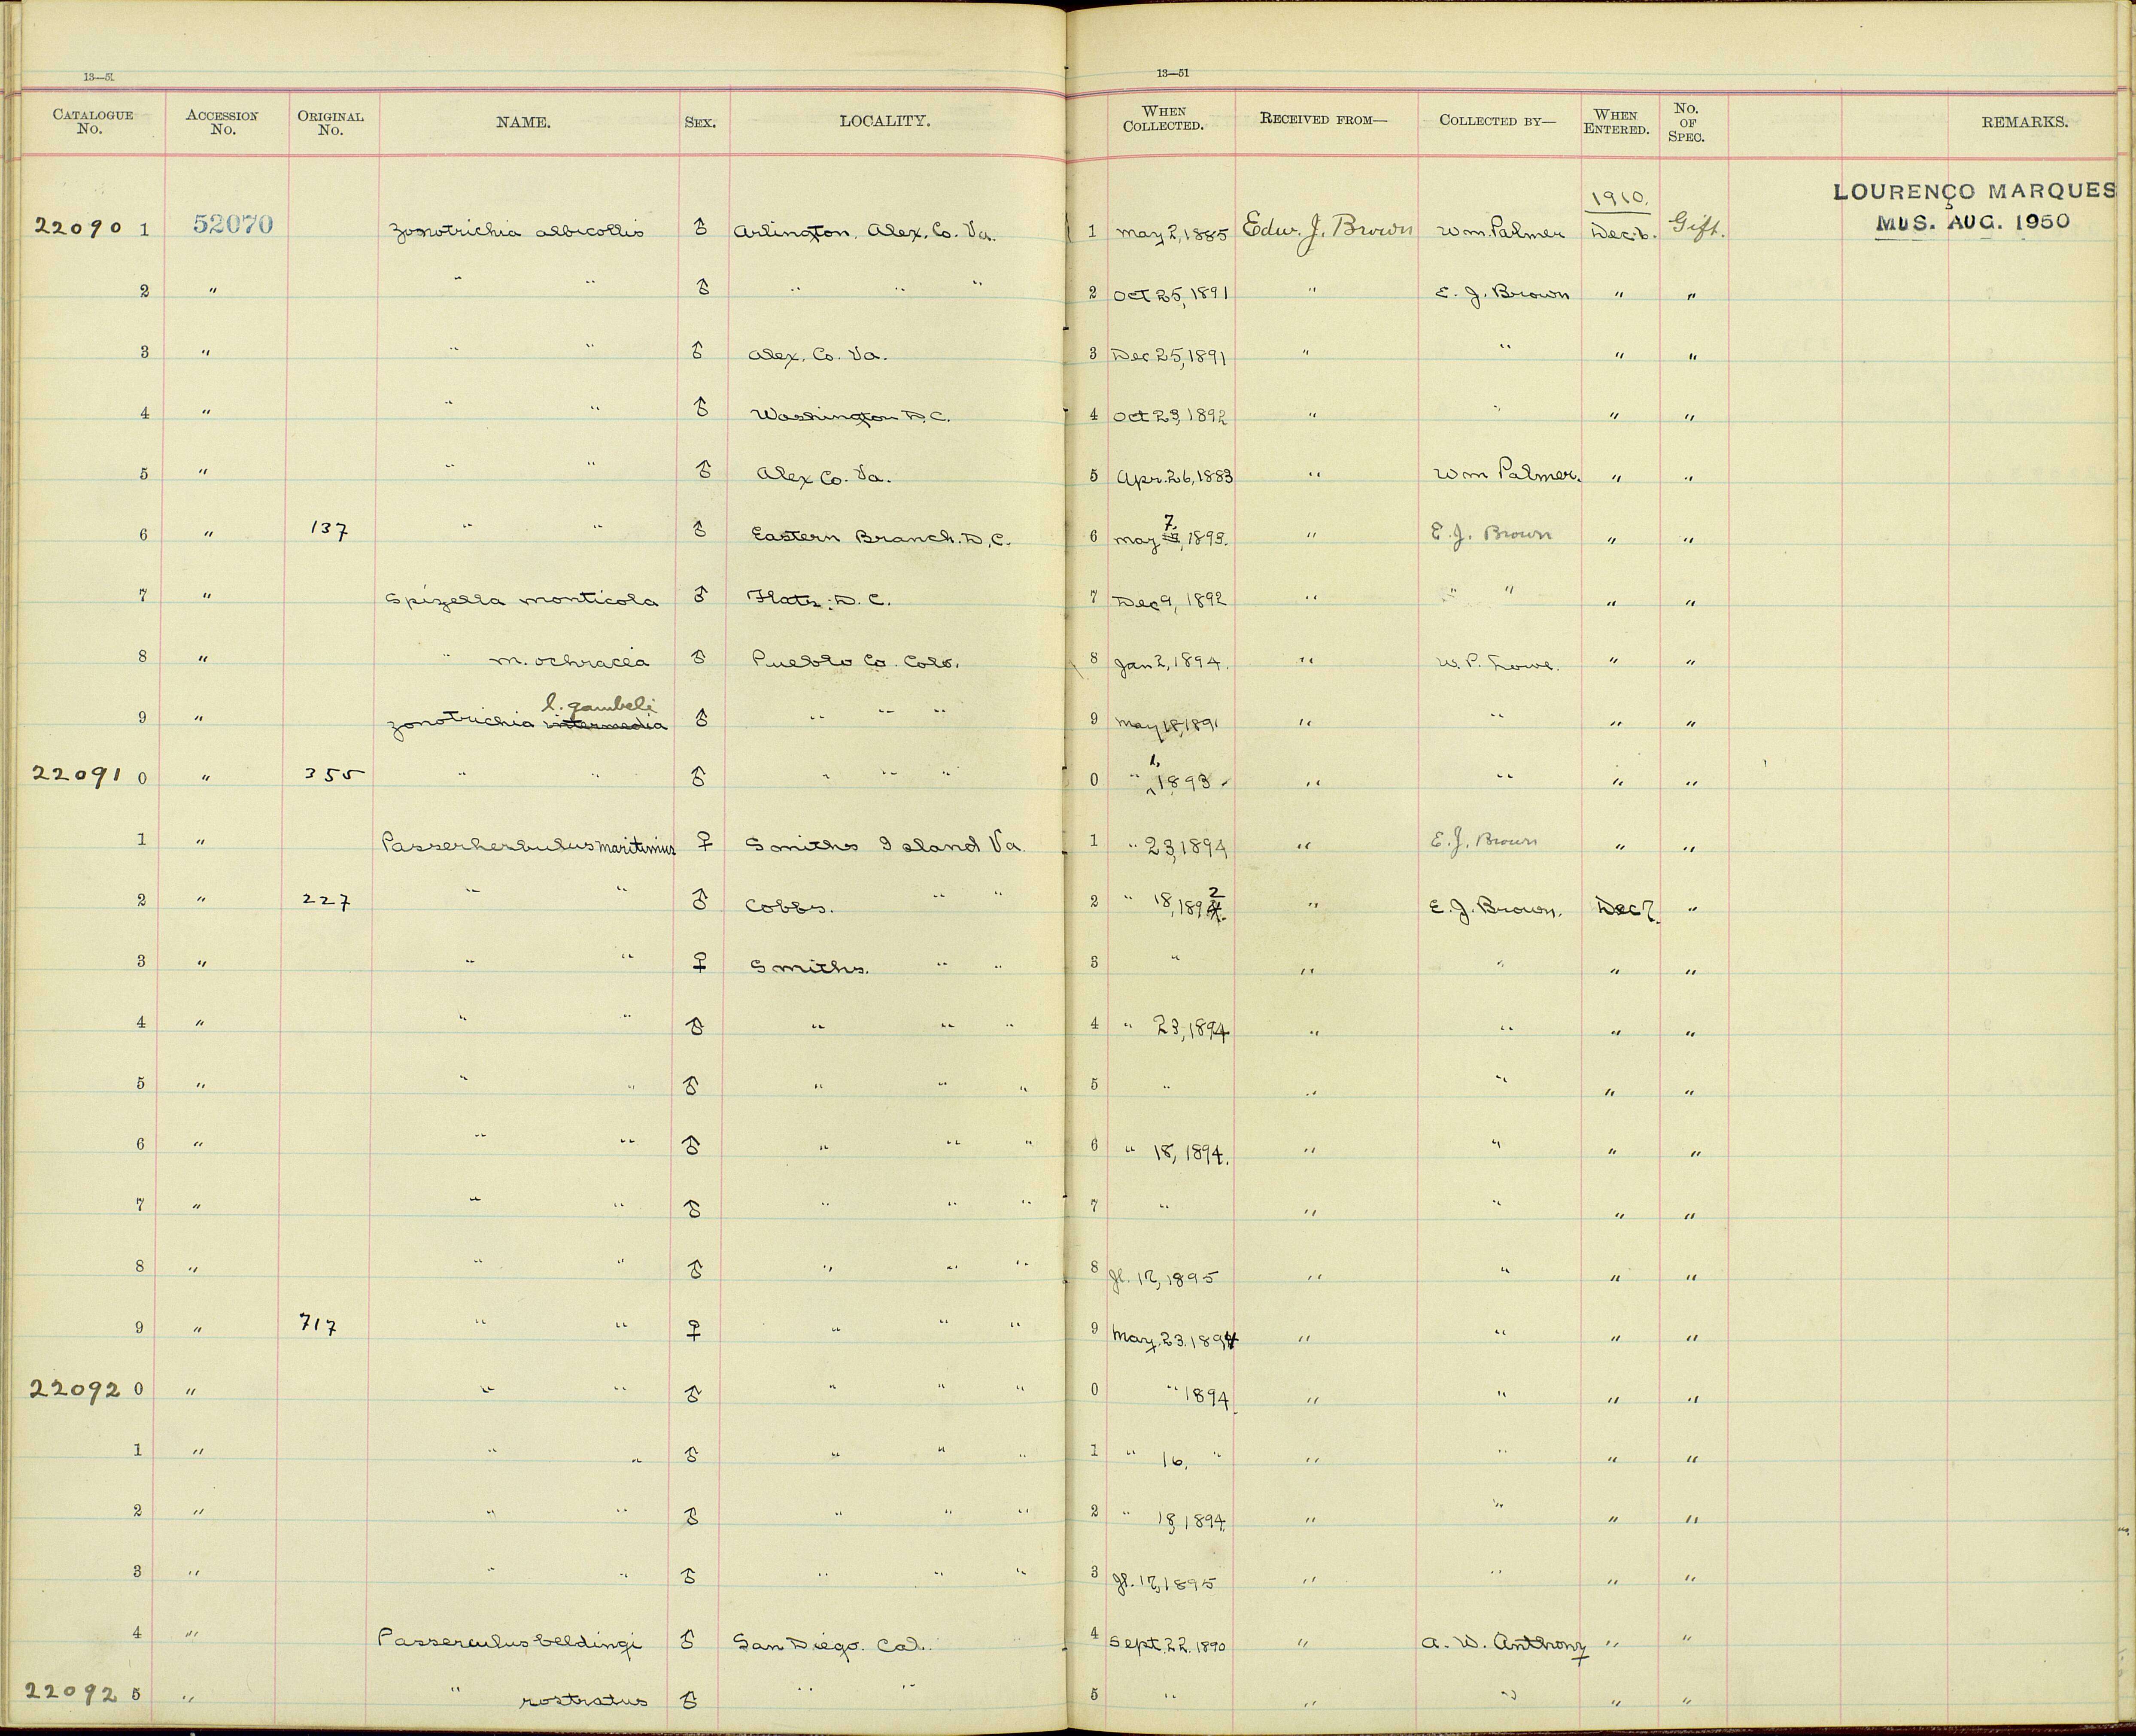 13—51
13—51
CATALOGUE No. ACCESSION No. ORIGINAL No. NAME. SEX. LOCALITY. WHEN COLLECTED. RECEIVED FROM— COLLECTED BY— WHEN ENTERED. No. OF SPEC. REMARKS.
LOURENÇO MARQUES
1910.
MUS. AUG. 1950
22090 1 52070 Zonotrichia albicollis ♂ Arlington, Alex. Co. Va. 1 May 2, 1885 Edw. J. Brown Wm. Palmer Dec. 6. Gift.
2 " " " ♂ " " " 2 Oct 25, 1891 " E. J. Brown " "
3 " " " ♂ Alex. Co. Va. 3 Dec 25, 1891 " " " "
4 " " " ♂ Washington D.C. 4 Oct 23, 1892 " " " "
5 " " " ♂ Alex Co. Va. 5 Apr. 26, 1883 " Wm Palmer. " "
6 " 137 " " ♂ Eastern Branch. D.C. 6 May 7, 1893. " E. J. Brown " "
7 " Spizella monticola ♂ Flats. D. C. 7 Dec 9, 1892 " " " " "
8 " " m. ochracea ♂ Pueblo Co. Colo. 8 Jan 2, 1894. " W. P. Lowe. " "
l. gambeli
9 " Zonotrichia intermedia ♂ " " " 9 May 18, 1891 " " " "
22091 0 " 355 " " ♂ " " " 0 " 1, 1893 " " " "
1 " Passerherbulus maritimus ♀ Smiths Island Va. 1 " 23, 1894 " E. J. Brown " "
2 " 227 " " ♂ Cobbs. " " 2 " 18, 1892 " E. J. Brown. Dec 7. "
3 " " " ♀ Smiths. " " 3 " " " " "
4 " " " ♂ " " " 4 " 23, 1894 " " " "
5 " " " ♂ " " " 5 " " " " "
6 " " " ♂ " " " 6 " 18, 1894. " " " "
7 " " " ♂ " " " 7 " " " " "
8 " " " ♂ " " " 8 Jl. 17, 1895 " " " "
9 " 717 " " ♀ " " " 9 May. 23. 1894 " " " "
22092 0 " " " ♂ " " " 0 " 1894 " " " "
1 " " " ♂ " " " 1 " 16, " " " " "
2 " " " ♂ " " " 2 " 18, 1894 " " " "
3 " " " ♂ " " " 3 Jl. 17, 1895 " " " "
4 " Passerculus beldingi ♂ San Diego. Cal. 4 Sept. 22. 1890 " A. W. Anthony " "
22092 5 " " rostratus ♂ " " 5 " " " " "